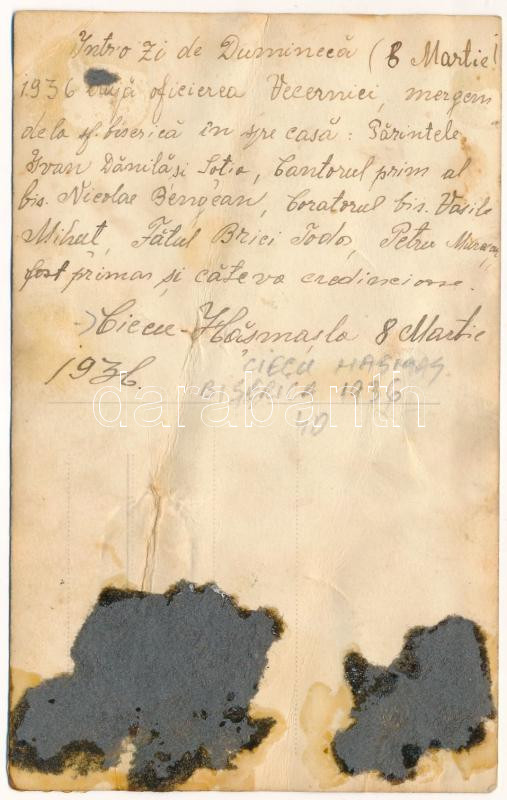 Într-o zi de Duminecă (8 Martie
1936 după oficierea Vecerniei, mergem
dela sf. biserică în spre casă: Părintele
Ivan Dănilă și Soția, Cantorul prim al
bis. Nicolae Bengean, Coratorul bis. Vasile
Mihuț, Fătul Brici Todor, Petru
fost primar și câteva credincioase.
Ciceu-Hășmaș la 8 Martie
1936.
CICEU HASMAS
BISERICA 1936
40
darabanth